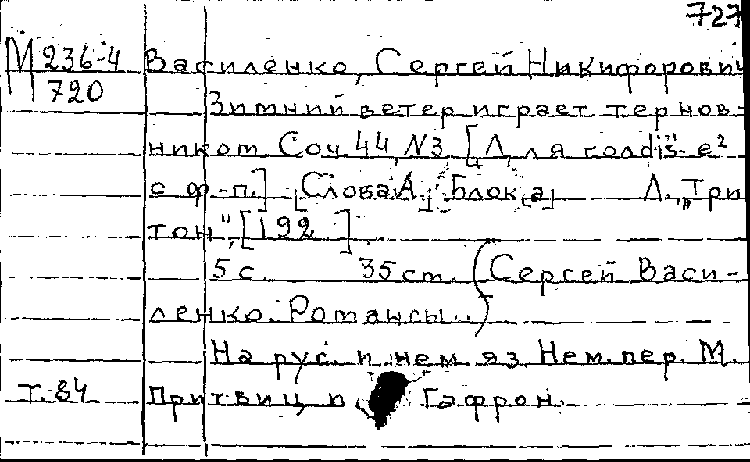 727
М 236-4 Василенко, Сергей Никифорович
720
Зимний ветер играет тернов-
ником. Соч. 44, №3. [Для голоса dis-e²
с ф-п.] [Слова А.] Блок[а] Л., „Три
тон", [192 ].
5 с. 35 cm. (Сергей Васи-
ленко. Романсы..)
На рус. и нем. яз. Нем. пер. М.
т. 84 Притвиц и Гафрон.